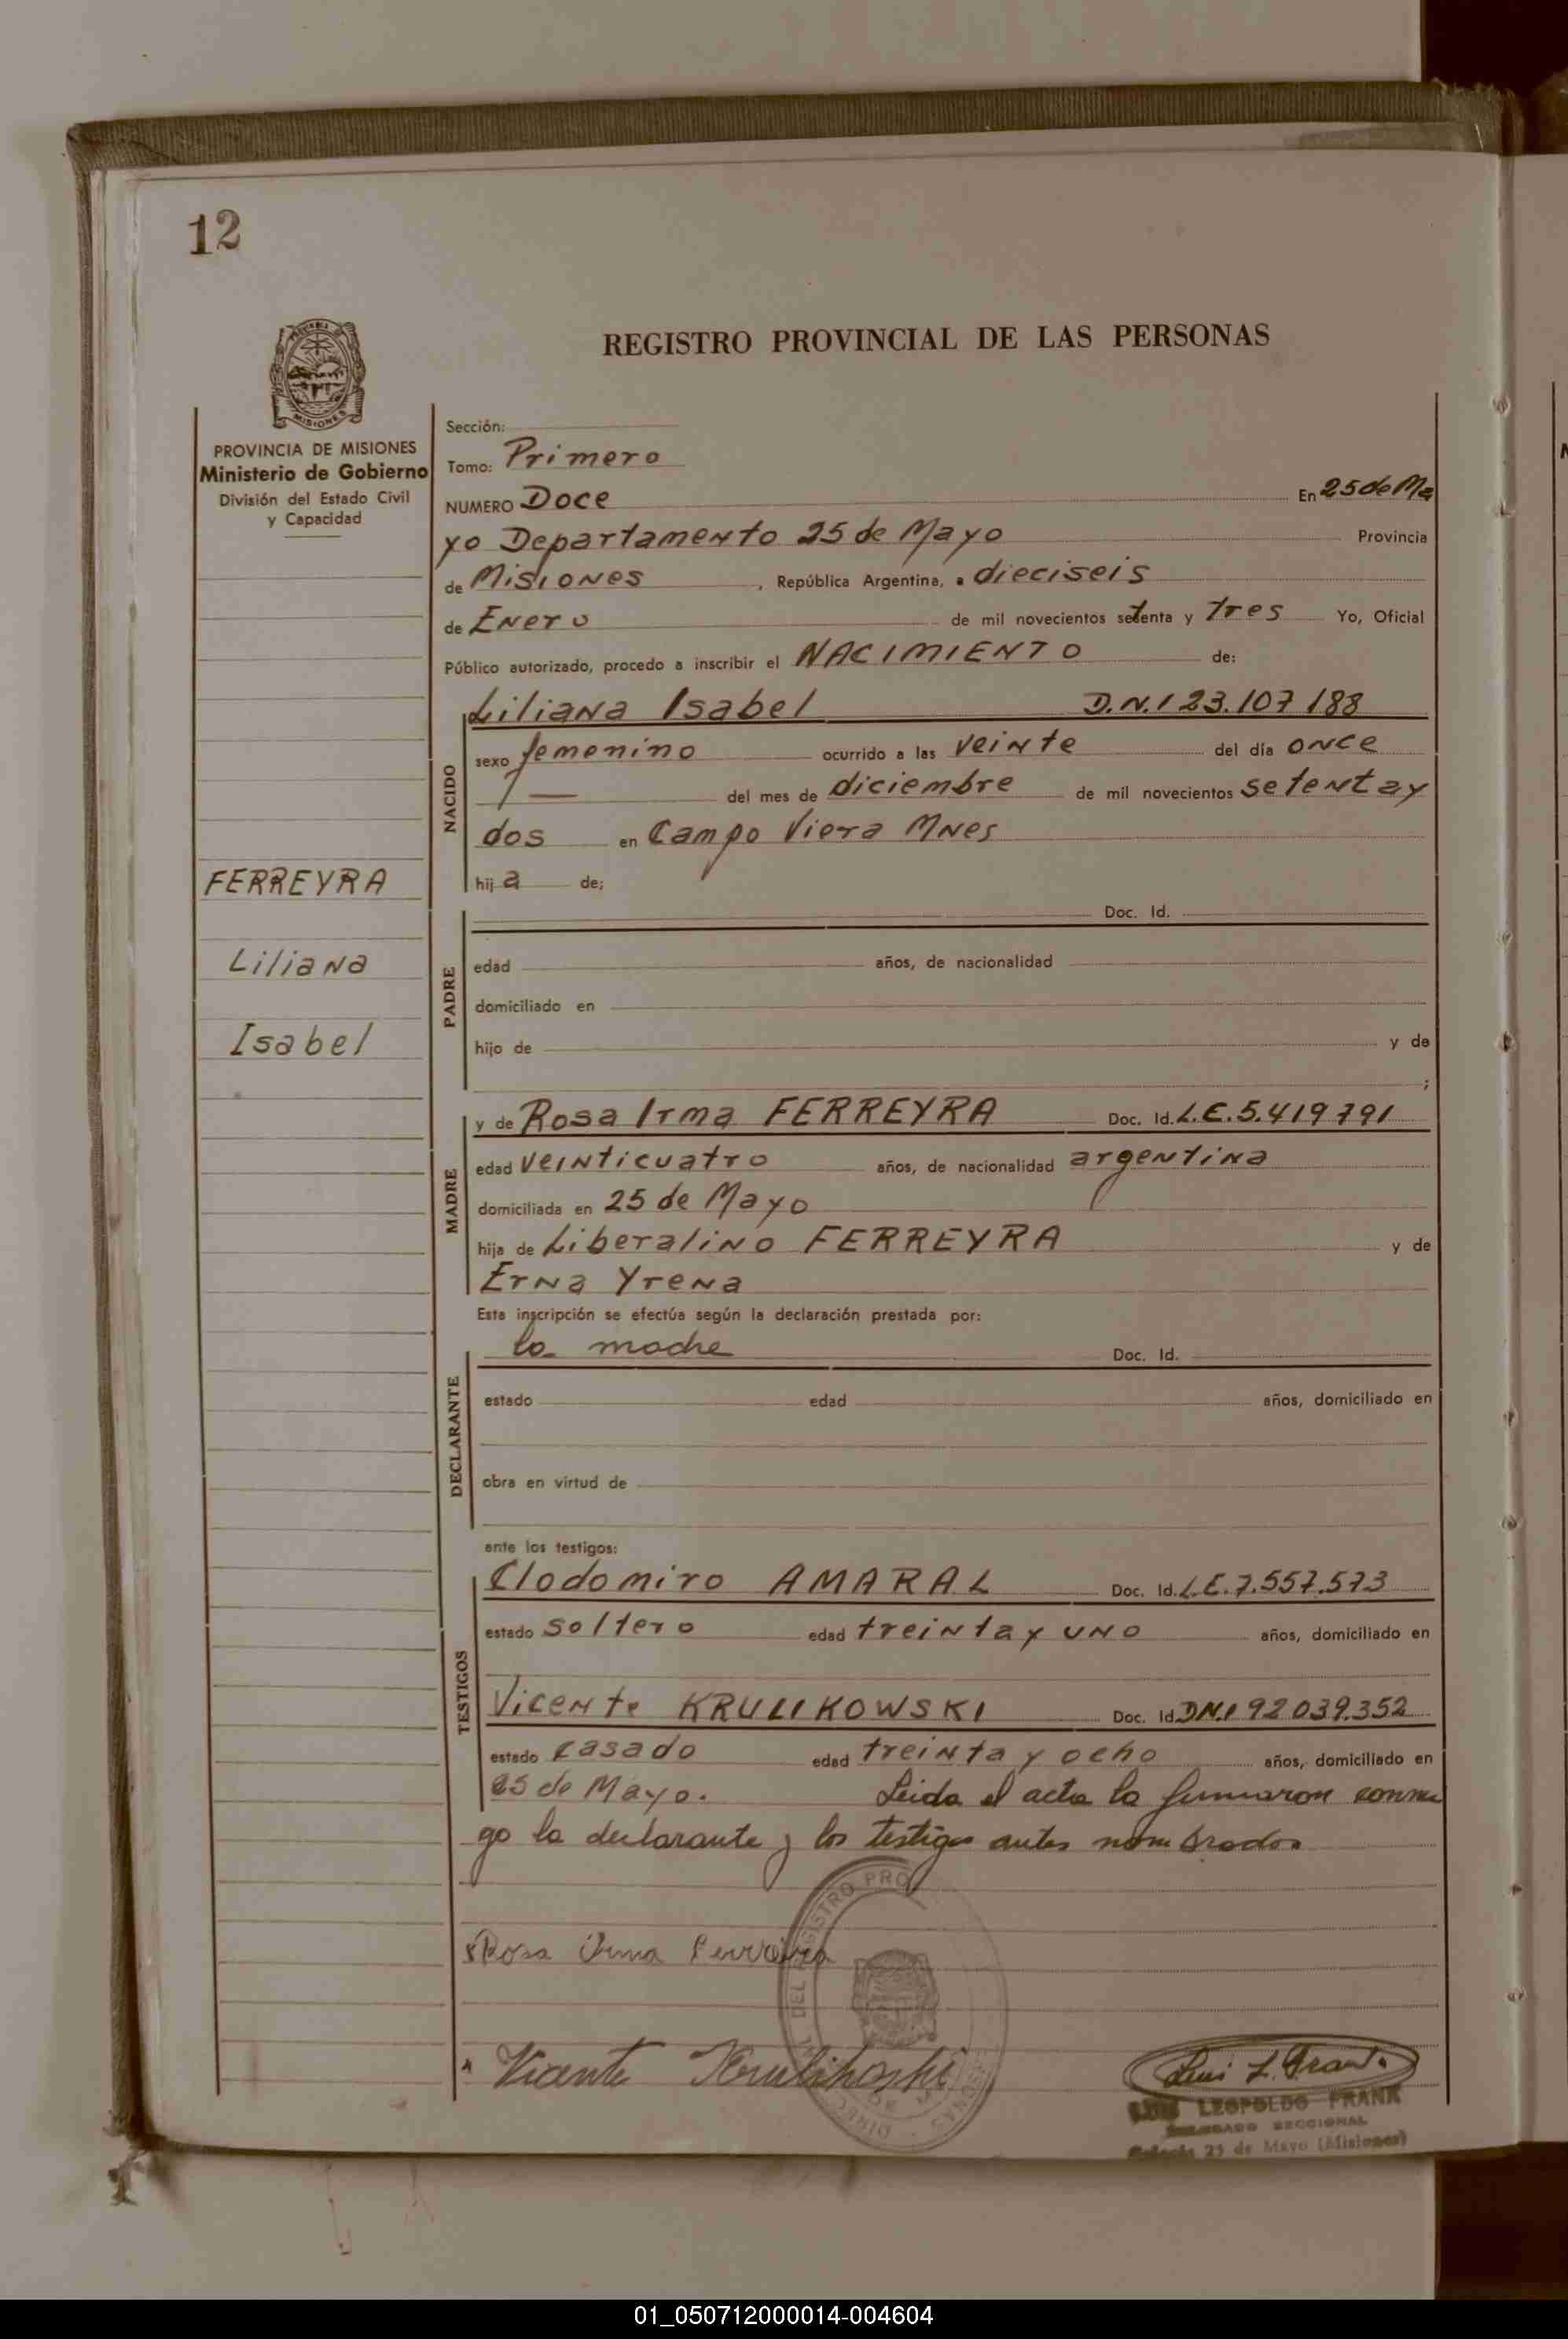 12
REGISTRO PROVINCIAL DE LAS PERSONAS
MISIONES
PROVINCIA DE MISIONES
Ministerio de Gobierno
División del Estado Civil
y Capacidad
FERREYRA
Liliana
Isabel
Sección:
Tomo: Primero
NUMERO Doce En 25 de Ma
yo Departamento 25 de Mayo Provincia
de Misiones , República Argentina, a dieciseis
de Enero de mil novecientos setenta y tres Yo, Oficial
Público autorizado, procedo a inscribir el NACIMIENTO de:
NACIDO
Liliana Isabel D.N.I 23.107 188
sexo femenino ocurrido a las veinte del día once
del mes de diciembre de mil novecientos setenta y
dos en Campo Viera Mnes
hij a de;
PADRE
Doc. Id.
edad años, de nacionalidad
domiciliado en
hijo de y de
;
MADRE
y de Rosa Irma FERREYRA Doc. Id. L.E. 5.419791
edad veinticuatro años, de nacionalidad argentina
domiciliada en 25 de Mayo
hija de Liberalino FERREYRA y de
Erna Yrena
Esta inscripción se efectúa según la declaración prestada por:
DECLARANTE
la madre Doc. Id.
estado edad años, domiciliado en
obra en virtud de
ante los testigos:
TESTIGOS
Clodomiro AMARAL Doc. Id. L.E. 7.557.573
estado soltero edad treinta y uno años, domiciliado en
Vicente KRULIKOWSKI Doc. Id. DN.I 92 039.352
estado casado edad treinta y ocho años, domiciliado en
25 de Mayo. Leida el acta la firmaron conmi
go la declarante y los testigos antes nombrados
Rosa Irma Ferreira
Vicente Krulikoski
Luis L. Frank
LUIS LEOPOLDO FRANK
DELEGADO SECCIONAL
Colonia 25 de Mayo (Misiones)
01_050712000014-004604